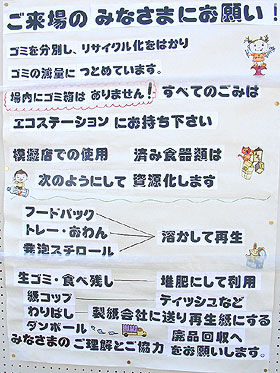 ご来場の みなさまにお願い!
ゴミを分別し、リサイクル化をはかり
ゴミの減量に つとめています。
場内にゴミ箱は ありません! すべてのごみは
エコステーション にお持ち下さい
模擬店での使用 済み食器類は
次のようにして 資源化します
フードパック
トレー・おわん
発泡スチロール
溶かして再生
生ゴミ・食べ残し 堆肥にして利用
紙コップ ティッシュなど
わりばし 製紙会社に送り再生紙にする
ダンボール 廃品回収へ
みなさまの ご理解とご協力 をお願いします。